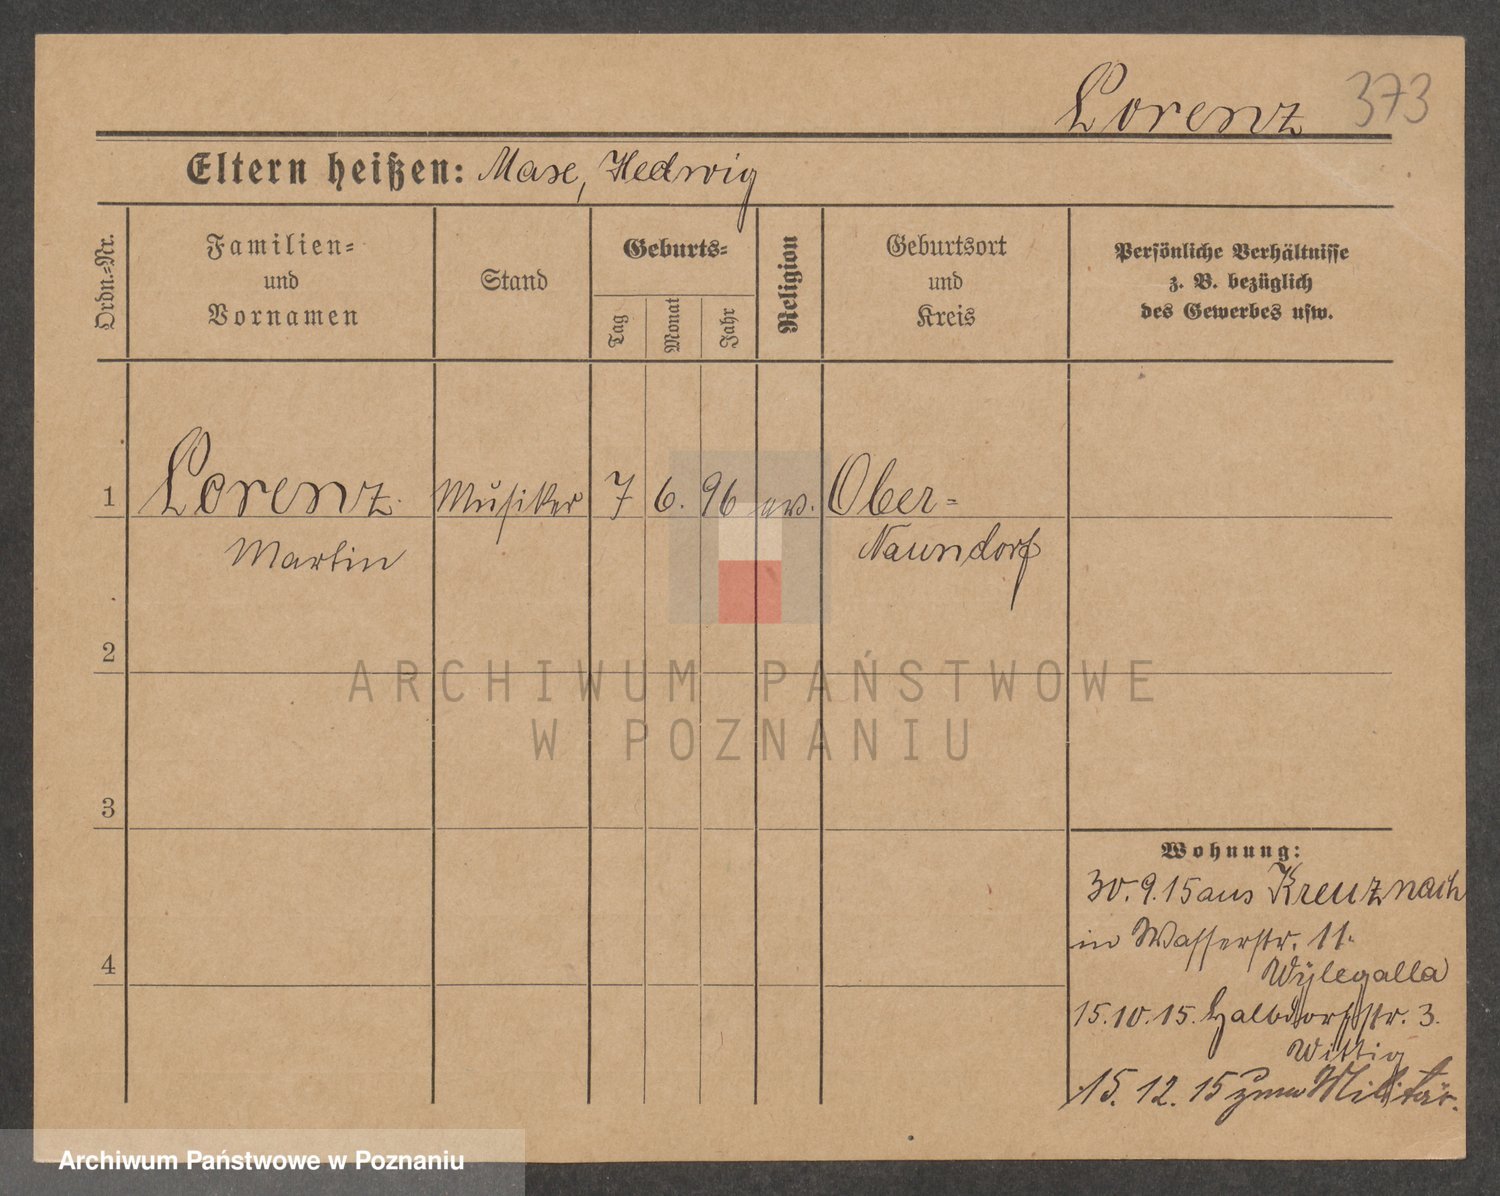 Lorenz 373
Eltern heißen: Max, Hedwig
Ordn.=Nr.
Familien=
und
Vornamen
Stand
Geburts=
Tag
Monat
Jahr
Religion
Geburtsort
und
Kreis
Persönliche Verhältnisse
z. B. bezüglich
des Gewerbes usw.
1 Lorenz Musiker 7 6. 96 ev. Ober=
Martin Naundorf
2
3
4
Wohnung:
30. 9. 15 aus Kreuznach
in Wasserstr. 11.
Wylegalla
15. 10. 15. Halbdorfstr. 3.
Wittig
15. 12. 15 zum Militär.
ARCHIWUM PAŃSTWOWE
W POZNANIU
Archiwum Państwowe w Poznaniu